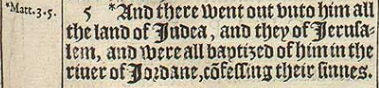 *Matt. 3.5.
5 *And there went out vnto him all
the land of Judea, and they of Jerusa-
lem, and were all baptized of him in the
riuer of Jordane, cõfessing their sinnes.